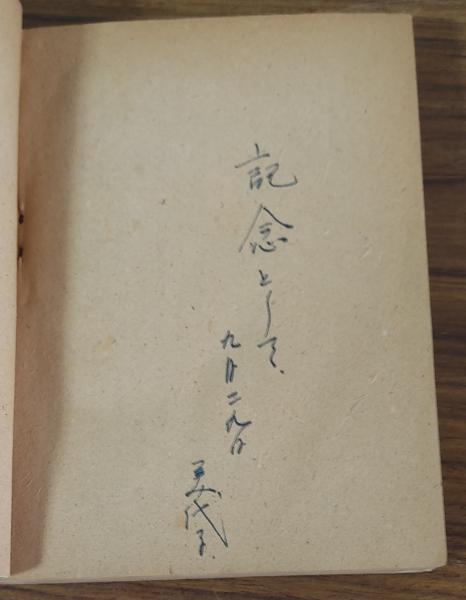 記念として、
九月二九日
美代子